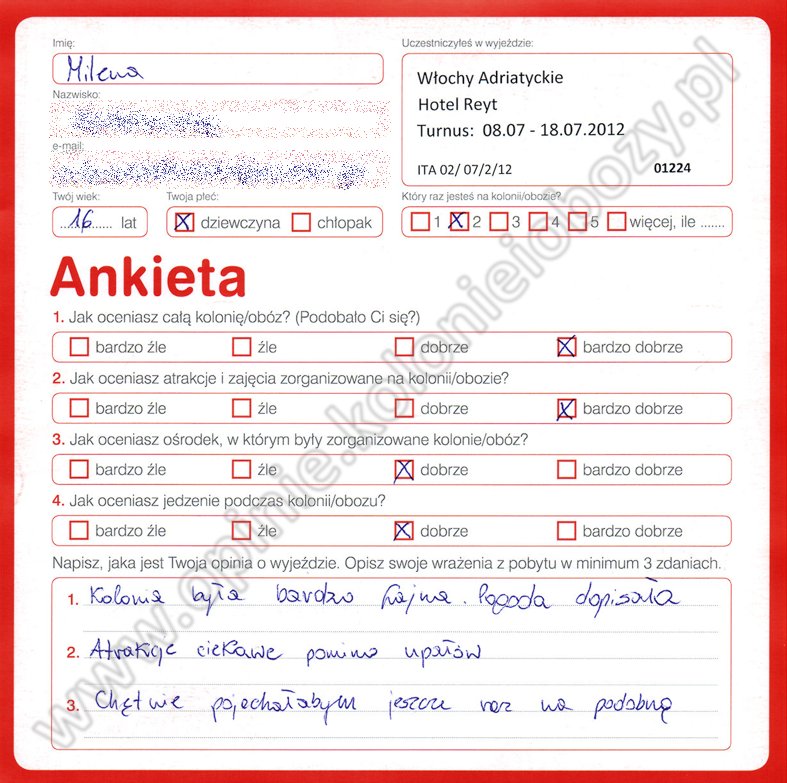 Imię:
Milena
Nazwisko:
e-mail:
Twój wiek:
16 lat
Twoja płeć:
dziewczyna chłopak
Uczestniczyłeś w wyjeździe:
Włochy Adriatyckie
Hotel Reyt
Turnus: 08.07 - 18.07.2012
ITA 02/ 07/2/12 01224
Który raz jesteś na kolonii/obozie?
1 2 3 4 5 więcej, ile .......
Ankieta
1. Jak oceniasz całą kolonię/obóz? (Podobało Ci się?)
bardzo źle źle dobrze bardzo dobrze
2. Jak oceniasz atrakcje i zajęcia zorganizowane na kolonii/obozie?
bardzo źle źle dobrze bardzo dobrze
3. Jak oceniasz ośrodek, w którym były zorganizowane kolonie/obóz?
bardzo źle źle dobrze bardzo dobrze
4. Jak oceniasz jedzenie podczas kolonii/obozu?
bardzo źle źle dobrze bardzo dobrze
Napisz, jaka jest Twoja opinia o wyjeździe. Opisz swoje wrażenia z pobytu w minimum 3 zdaniach.
1. Kolonia była bardzo fajna. Pogoda dopisała
2. Atrakcje ciekawe pomimo upałów
3. Chętnie pojechałabym jeszcze raz na podobną
www.opinie.kolonieiobozy.pl